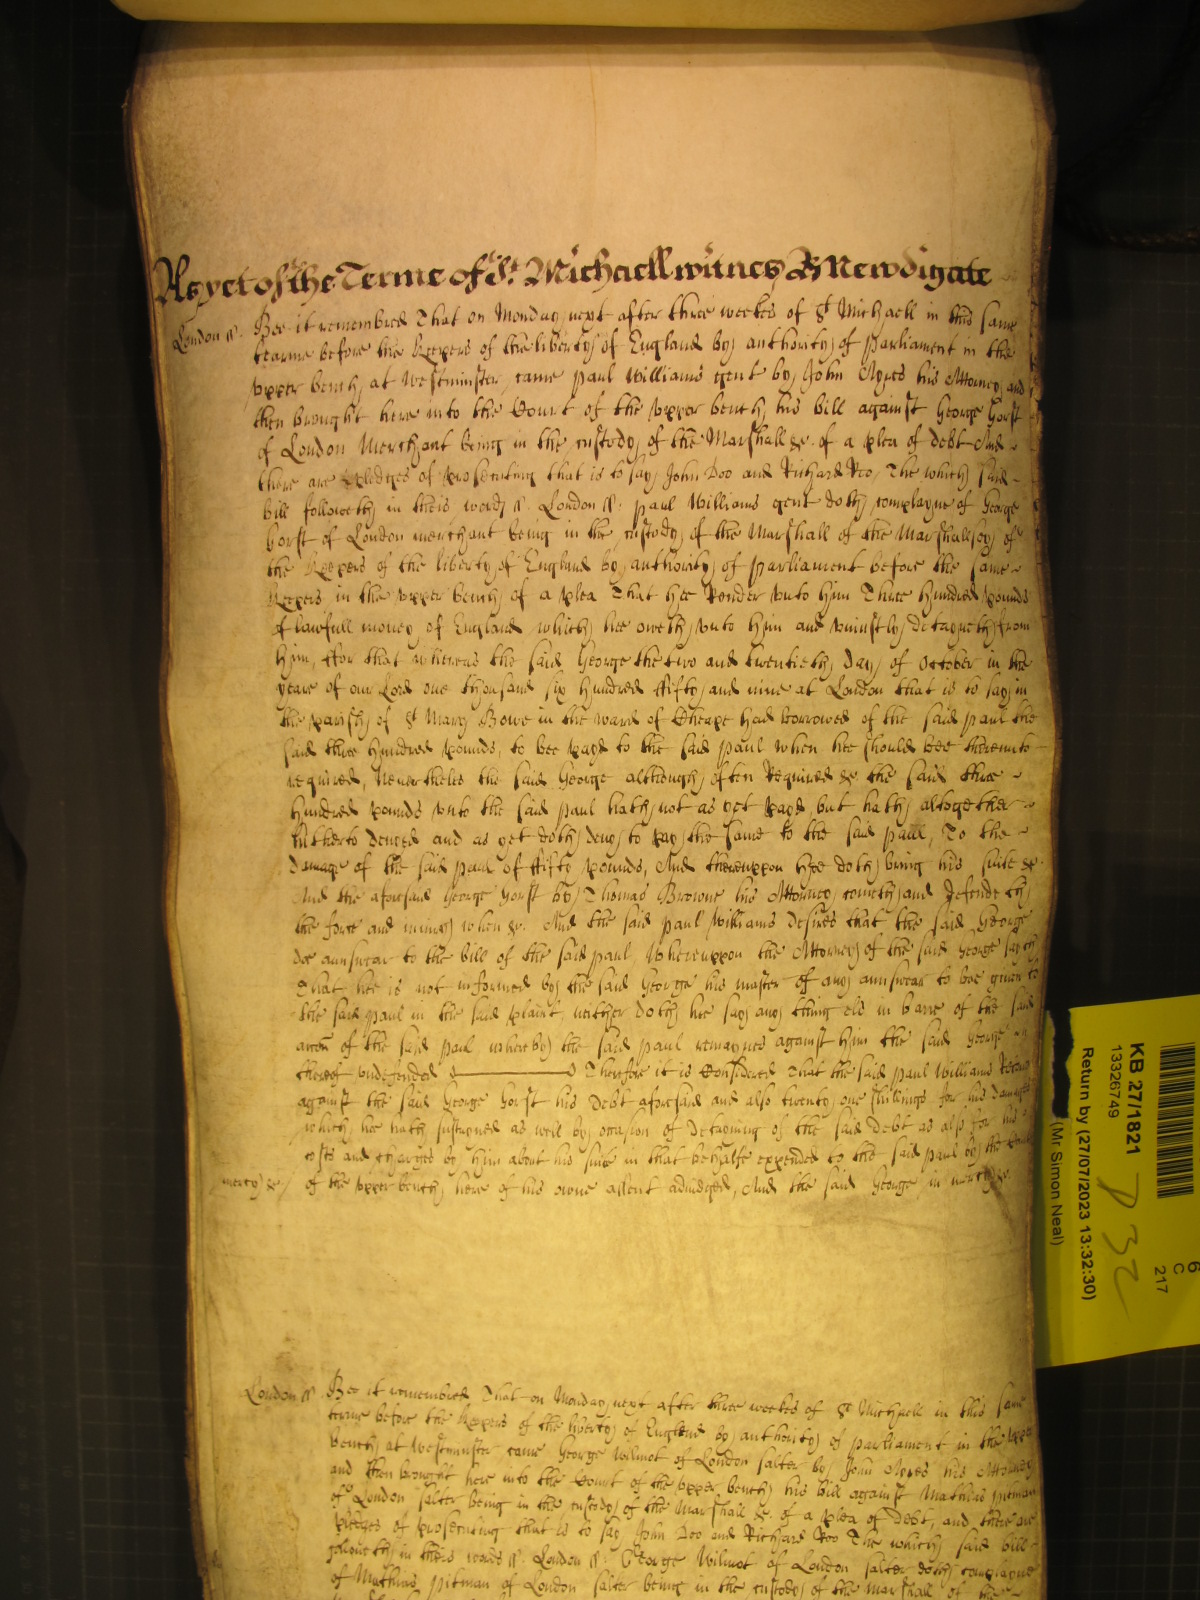 As yet of the Terme of St. Michaell witnes R Newdigate
London ss. Bee it remembred That on Monday next after three weekes of St Michaell in this same
tearme before the Keepers of the liberty of England by authority of Parliament in the
upper bench at Westminster came Paul Williams gent by John Ayres his Attorney and
then brought here into the Court of the upper bench his bill against George Horst
of London Merchant being in the custody of the Marshall &c. of a plea of debt And
there are pledges of prosecuting that is to say John Doo and Richard Roo, The which said
bill followeth in theis words ss. London ss. Paul Williams gent doth complayne of George
Horst of London merchant being in the custody of the Marshall of the Marshallsey of
the Keepers of the liberty of England by authority of Parliament before the same
Keepers in the upper bench of a plea That hee Render unto him Three hundred pounds
of lawfull money of England which hee oweth unto him and uniustly detayneth from
him, ffor that whereas the said George the two and twentieth day of October in the
yeare of our Lord one thousand six hundred ffifty and nine at London that is to say in
the parish of St Mary Bowe in the ward of Cheape had borrowed of the said Paul the
said three hundred pounds, to bee payd to the said Paul when hee should bee thereunto
required, Neverthelos the said George although often Required &c the said three
hundred pounds unto the said Paul hath not as yet payd but hath altogether
hitherto denyed and as yet doth deny to pay the same to the said Paul, To the
damage of the said Paul of ffifty pounds, And thereuppon hee doth bring his suite &c
And the aforesaid George Horst by Thomas Browne his Attorney cometh and defendeth
the force and iniury when &c. And the said Paul Williams desires that the said George
doe aunswear to the bill of the said Paul, Whereuppon the Attorney of the said George sayeth
That hee is not informed by the said George his master of any aunswear to bee given to
the said Paul in the said plaint, neither doth hee say any thing els in barre of the said
accon of the said Paul whereby the said Paul remaynes against him the said George
thereof undefended Therefore it is Considered That the said Paul Williams Recover
against the said George Horst his debt aforesaid and also twenty one shillings for his damages
which hee hath sustayned as well by occasion of detayning of the said debt as also for his
costs and charges by him about his suite in that behalfe expended to the said Paul by the Court
mercy &c of the upper bench here of his owne assent adiudged, And the said George in mercy &c.
London ss. Bee it remembred That on Monday next after three weekes of St Michaell in this same
terme before the Keepers of the liberty of England by authority of Parliament in the upper
bench at Westminster came George Wilmot of London salter by John Ayres his Attorney
and then brought here into the Court of the upper bench his bill against Mathias Pitman
of London salter being in the custody of the Marshall &c. of a plea of debt, and there are
pledges of prosecuting that is to say John Doo and Richard Roo The which said bill
followeth in theis words ss. London ss. George Wilmot of London salter doth complayne
of Mathias Pitman of London salter being in the custody of the Marshall of the
KB 27/1821
13326749
Return by (27/07/2023 13:32:30)
(Mr Simon Neal)
6
C
217
P 32